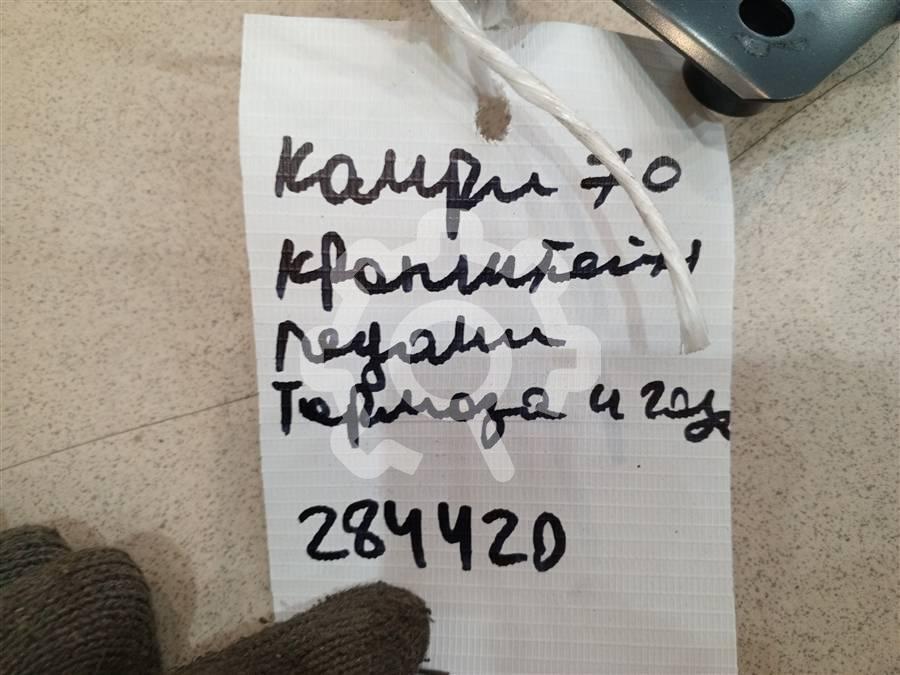 Камри 70
Кронштейн
педали
Тормоза и газа
284420